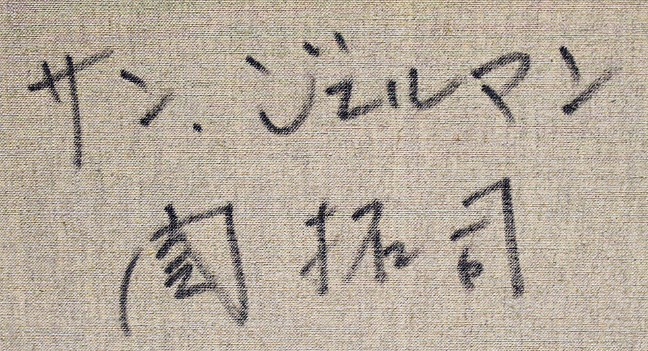 サン.ジェルマン
関拓司